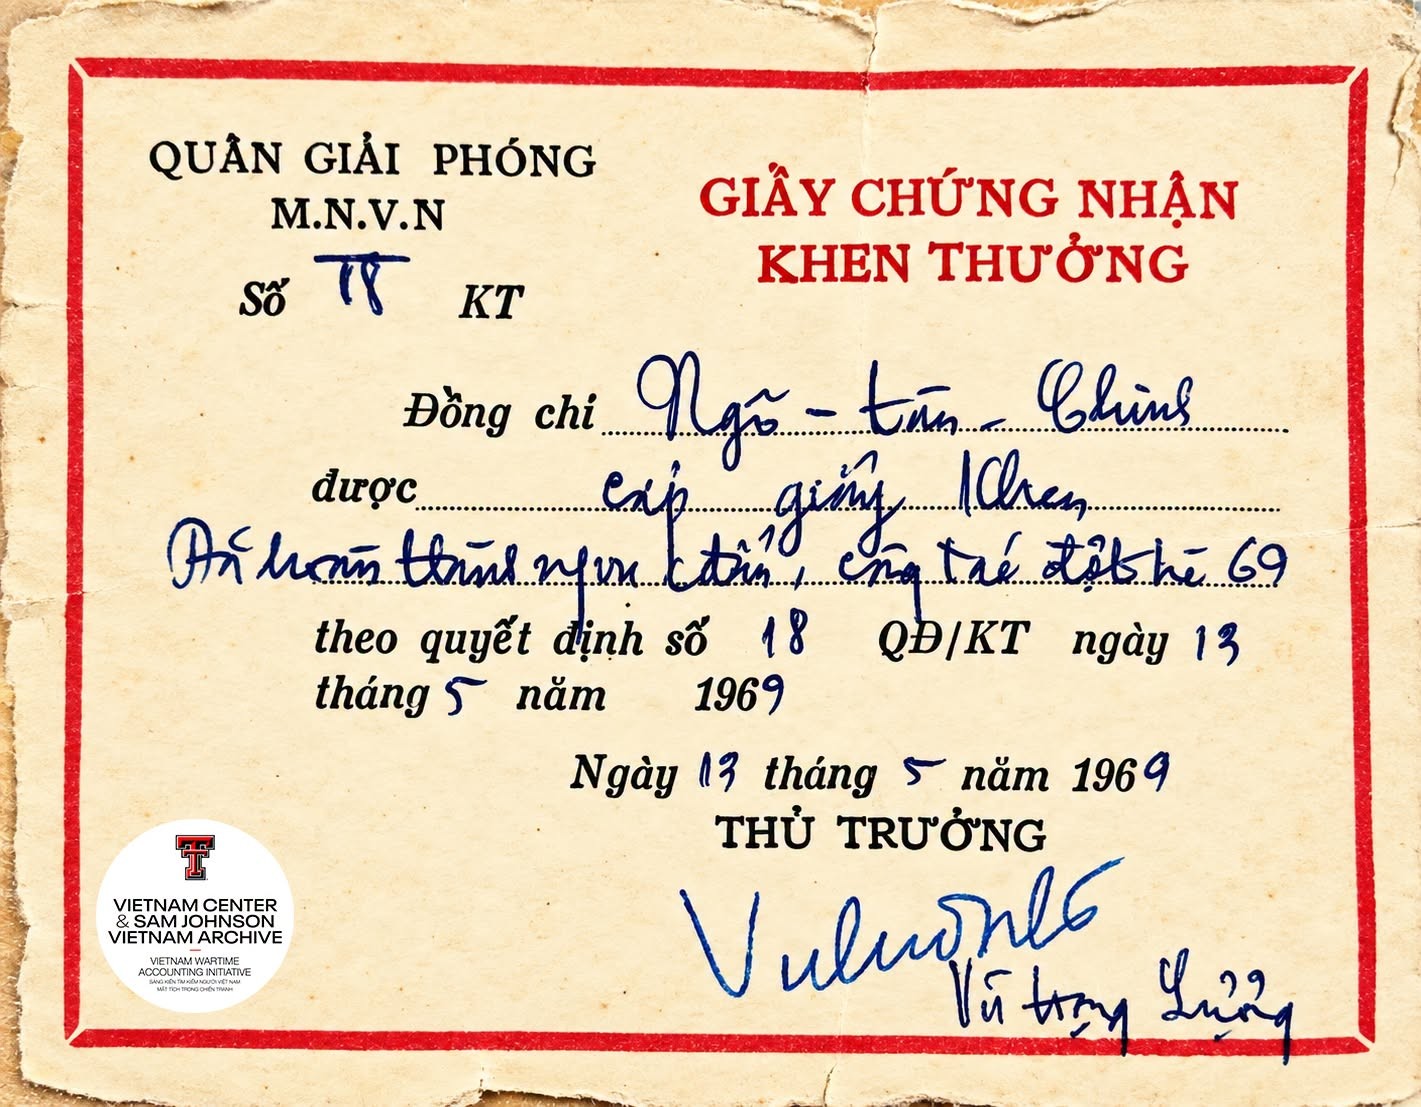 QUÂN GIẢI PHÓNG
M.N.V.N
Số 18 KT
GIẤY CHỨNG NHẬN
KHEN THƯỞNG
Đồng chí Ngô - tấn - Chinh
được cấp giấy Khen
Đã hoàn thành ngụ, công đột hè 69
theo quyết định số 18 QĐ/KT ngày 13
tháng 5 năm 1969
Ngày 13 tháng 5 năm 1969
THỦ TRƯỞNG
Vũ trọng Lưởng
VIETNAM CENTER
& SAM JOHNSON
VIETNAM ARCHIVE
VIETNAM WARTIME
ACCOUNTING INITIATIVE
SÁNG KIẾN TÌM KIẾM NGƯỜI VIỆT NAM
MẤT TÍCH TRONG CHIẾN TRANH